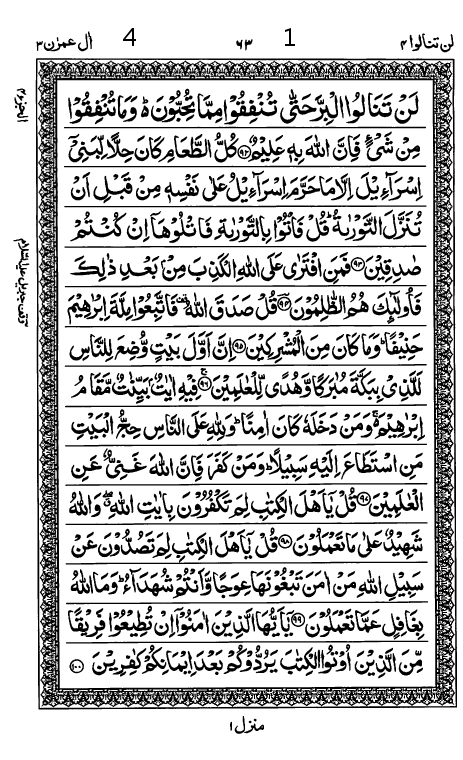 لن تنالوا ۴
1
۶۳
4
اٰل عمرٰن ۳
الجزء ۴
لَنْ تَنَالُوا الْبِرَّ حَتّٰى تُنْفِقُوْا مِمَّا تُحِبُّوْنَ ؕ وَمَا تُنْفِقُوْا
مِنْ شَىْءٍ فَاِنَّ اللّٰهَ بِهٖ عَلِيْمٌ ۹۲ كُلُّ الطَّعَامِ كَانَ حِلًّا لِّبَنِىْۤ
اِسْرَآءِيْلَ اِلَّا مَا حَرَّمَ اِسْرَآءِيْلُ عَلٰى نَفْسِهٖ مِنْ قَبْلِ اَنْ
تُنَزَّلَ التَّوْرٰىةُ ؕ قُلْ فَاْتُوْا بِالتَّوْرٰىةِ فَاتْلُوْهَاۤ اِنْ كُنْتُمْ
صٰدِقِيْنَ ۹۳ فَمَنِ افْتَرٰى عَلَى اللّٰهِ الْكَذِبَ مِنْۢ بَعْدِ ذٰلِكَ
فَاُولٰٓئِكَ هُمُ الظّٰلِمُوْنَ ۹۴ قُلْ صَدَقَ اللّٰهُ فَاتَّبِعُوْا مِلَّةَ اِبْرٰهِيْمَ
حَنِيْفًا ؕ وَمَا كَانَ مِنَ الْمُشْرِكِيْنَ ۹۵ اِنَّ اَوَّلَ بَيْتٍ وُّضِعَ لِلنَّاسِ
لَلَّذِىْ بِبَكَّةَ مُبٰرَكًا وَّهُدًى لِّلْعٰلَمِيْنَ ۹۶ فِيْهِ اٰيٰتٌۢ بَيِّنٰتٌ مَّقَامُ
اِبْرٰهِيْمَ ۚ وَمَنْ دَخَلَهٗ كَانَ اٰمِنًا ؕ وَلِلّٰهِ عَلَى النَّاسِ حِجُّ الْبَيْتِ
مَنِ اسْتَطَاعَ اِلَيْهِ سَبِيْلًا ؕ وَمَنْ كَفَرَ فَاِنَّ اللّٰهَ غَنِىٌّ عَنِ
الْعٰلَمِيْنَ ۹۷ قُلْ يٰۤاَهْلَ الْكِتٰبِ لِمَ تَكْفُرُوْنَ بِاٰيٰتِ اللّٰهِ ۖ وَاللّٰهُ
شَهِيْدٌ عَلٰى مَا تَعْمَلُوْنَ ۹۸ قُلْ يٰۤاَهْلَ الْكِتٰبِ لِمَ تَصُدُّوْنَ عَنْ
سَبِيْلِ اللّٰهِ مَنْ اٰمَنَ تَبْغُوْنَهَا عِوَجًا وَّاَنْتُمْ شُهَدَآءُ ؕ وَمَا اللّٰهُ
بِغَافِلٍ عَمَّا تَعْمَلُوْنَ ۹۹ يٰۤاَيُّهَا الَّذِيْنَ اٰمَنُوْۤا اِنْ تُطِيْعُوْا فَرِيْقًا
مِّنَ الَّذِيْنَ اُوْتُوا الْكِتٰبَ يَرُدُّوْكُمْ بَعْدَ اِيْمَانِكُمْ كٰفِرِيْنَ ۱۰۰
وقف جبريل عليه السلام
منزل ۱